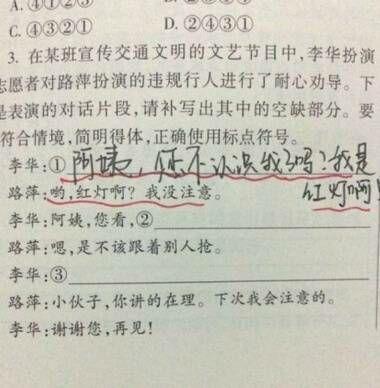 A. ④①②③
C. ④③②① D. ②④③①
3. 在某班宣传交通文明的文艺节目中,李华扮演
志愿者对路萍扮演的违规行人进行了耐心劝导。下
是表演的对话片段,请补写出其中的空缺部分。要
符合情境,简明得体,正确使用标点符号。
李华:① 阿姨,您不认识我了吗?我是
红灯啊!
路萍:哟,红灯啊?我没注意。
李华:阿姨,您看,②
路萍:嗯,是不该跟着别人抢。
李华:③
路萍:小伙子,你讲的在理。下次我会注意的。
李华:谢谢您,再见!